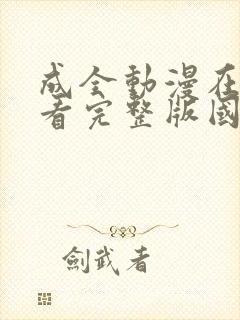 成全動漫在
看完整版國
劍武者